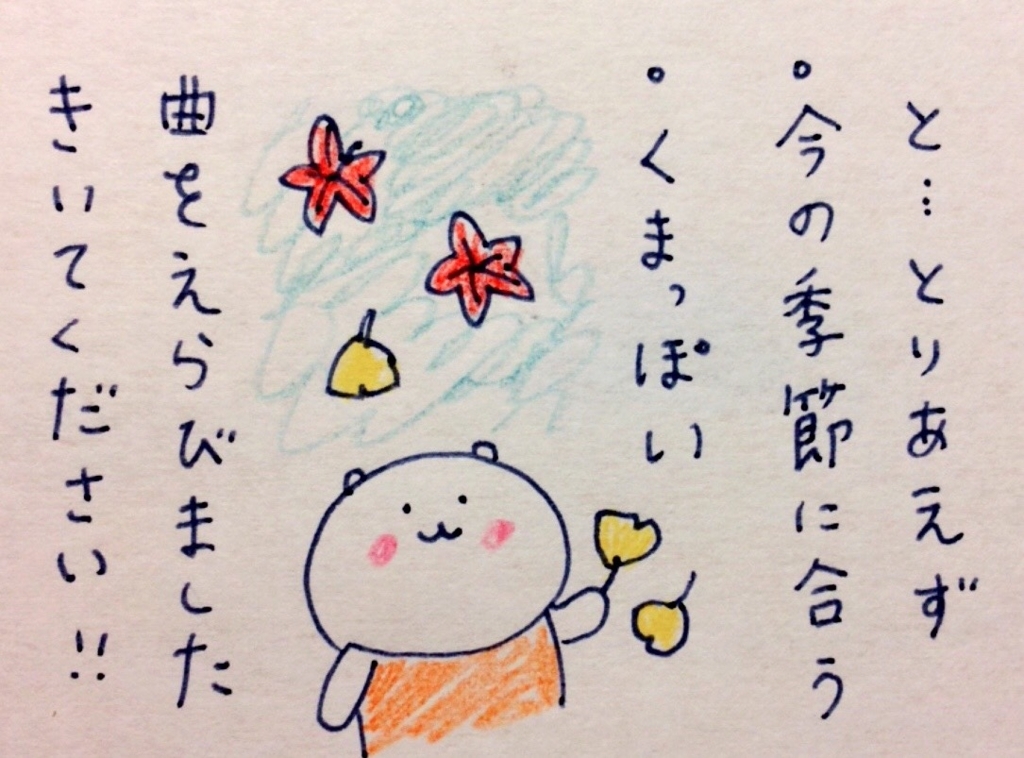 と…とりあえず
・今の季節に合う
・くまっぽい
曲をえらびました
きいてください!!